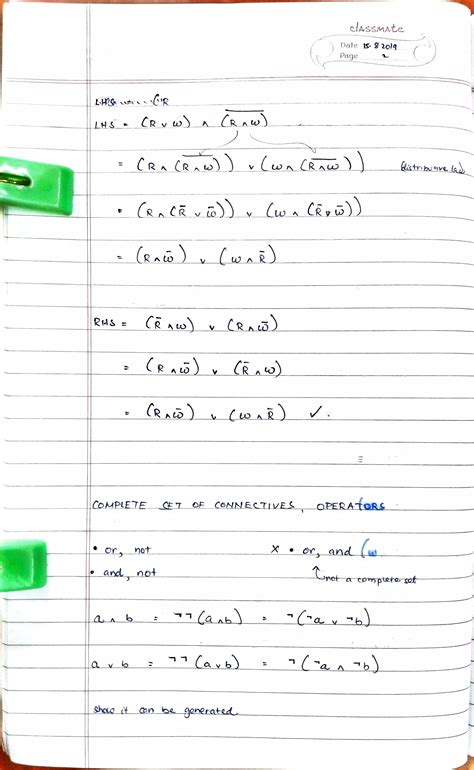 classmate
Date 15.8.2019
Page 2
LHS = (R ∨ ω) ∧ (R̅ ̅∧̅ ̅ω̅)
= (R ∧ (R̅ ̅∧̅ ̅ω̅)) ∨ (ω ∧ (R̅ ̅∧̅ ̅ω̅)) distributive law
= (R ∧ (R̅ ∨ ω̅)) ∨ (ω ∧ (R̅ ∨ ω̅))
= (R ∧ ω̅) ∨ (ω ∧ R̅)
RHS = (R̅ ∧ ω) ∨ (R ∧ ω̅)
= (R ∧ ω̅) ∨ (R̅ ∧ ω)
= (R ∧ ω̅) ∨ (ω ∧ R̅) ✓.
COMPLETE SET OF CONNECTIVES, OPERATORS
• or, not X • or, and (ω
• and, not ↑ not a complete set
a ∧ b = ¬¬(a∧b) = ¬(¬a ∨ ¬b)
a ∨ b = ¬¬(a∨b) = ¬(¬a ∧ ¬b)
show it can be generated